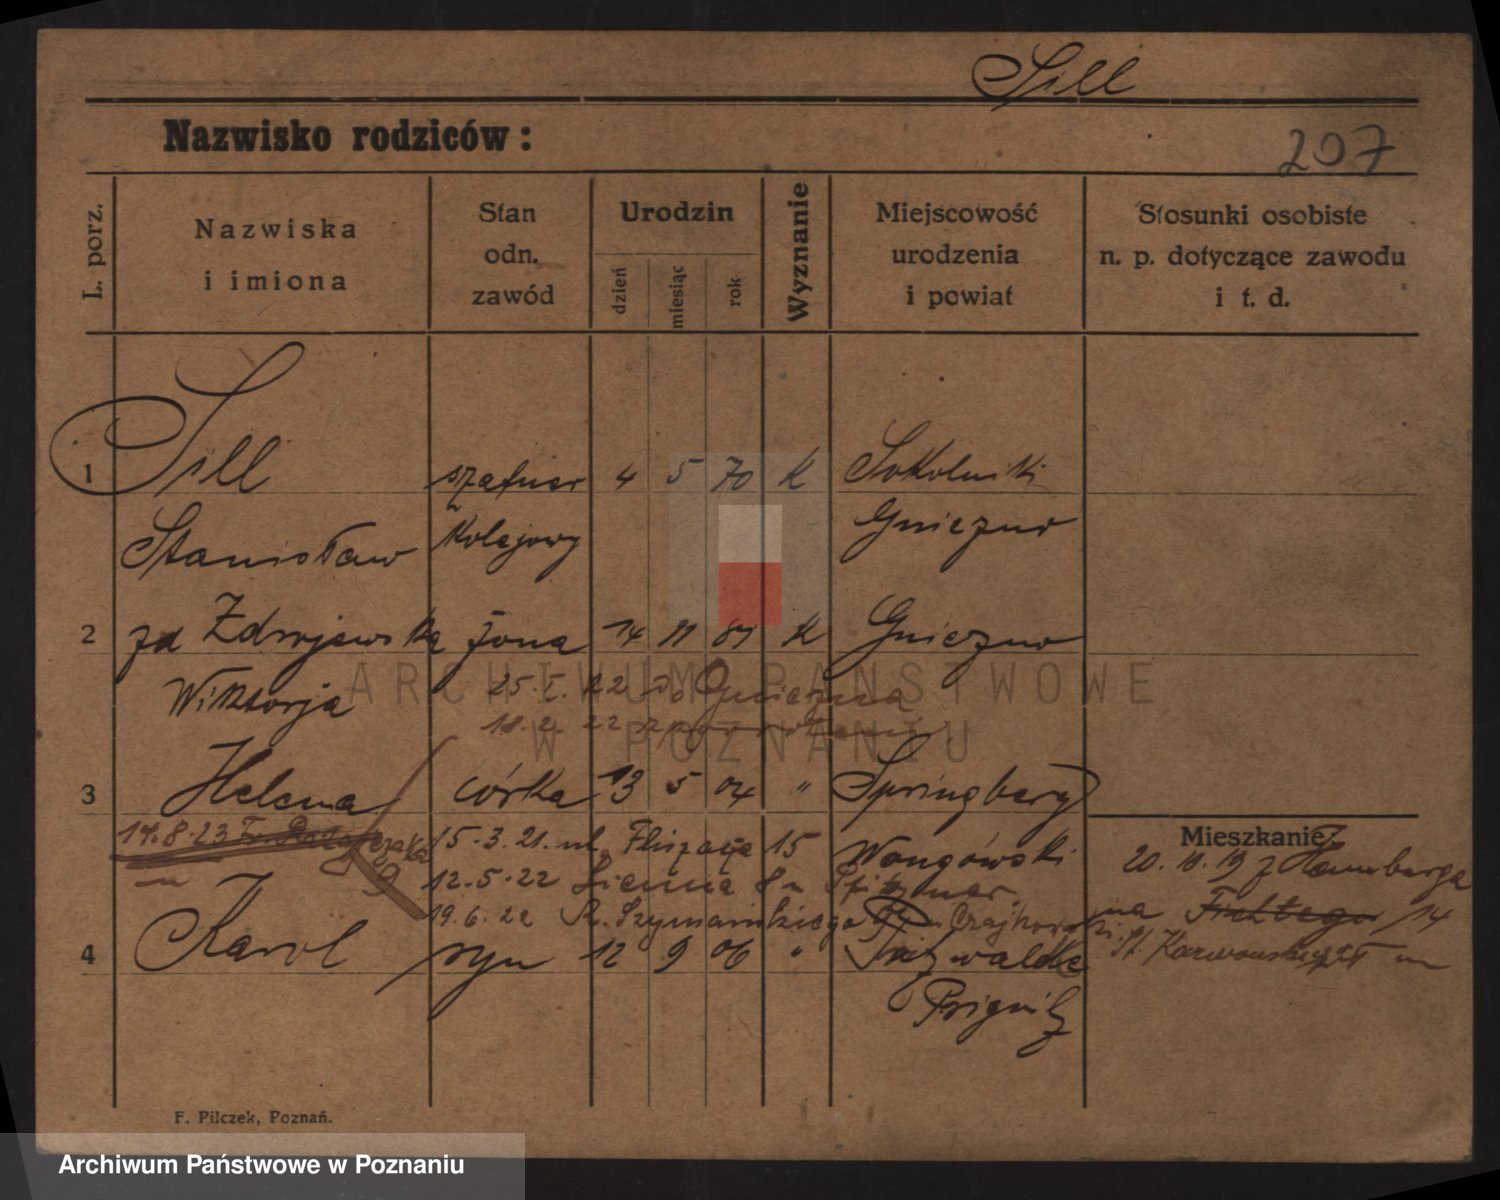 Sill
Nazwisko rodziców:
207
L. porz.
Nazwiska
i imiona
Stan
odn.
zawód
Urodzin
dzień
miesiąc
rok
Wyznanie
Miejscowość
urodzenia
i powiat
Stosunki osobiste
n. p. dotyczące zawodu
i t. d.
1 Sill szafner 4 5 70 K Sokolniki
Stanisław kolejowy Gniezno
2 zd Zdrojewska żona 14 11 81 K Gniezno
Wiktorja 25. I. 22 do Gniezna
18. 2. 22 z powrotem
3 Helena córka 13 5 04 " Springberg
Mieszkanie
17.8.23 15.3.21. ul. 15 Wongówski
20.11.19 z Hamburga
12.5.22 Sienna 8
19.6.22 Szymańskiego 9 Czajkowski
na Fichtego 14
4 Karol syn 12 9 06 "
Prignitz
F. Pilczek, Poznań.
ARCHIWUM PAŃSTWOWE
W POZNANIU
Archiwum Państwowe w Poznaniu